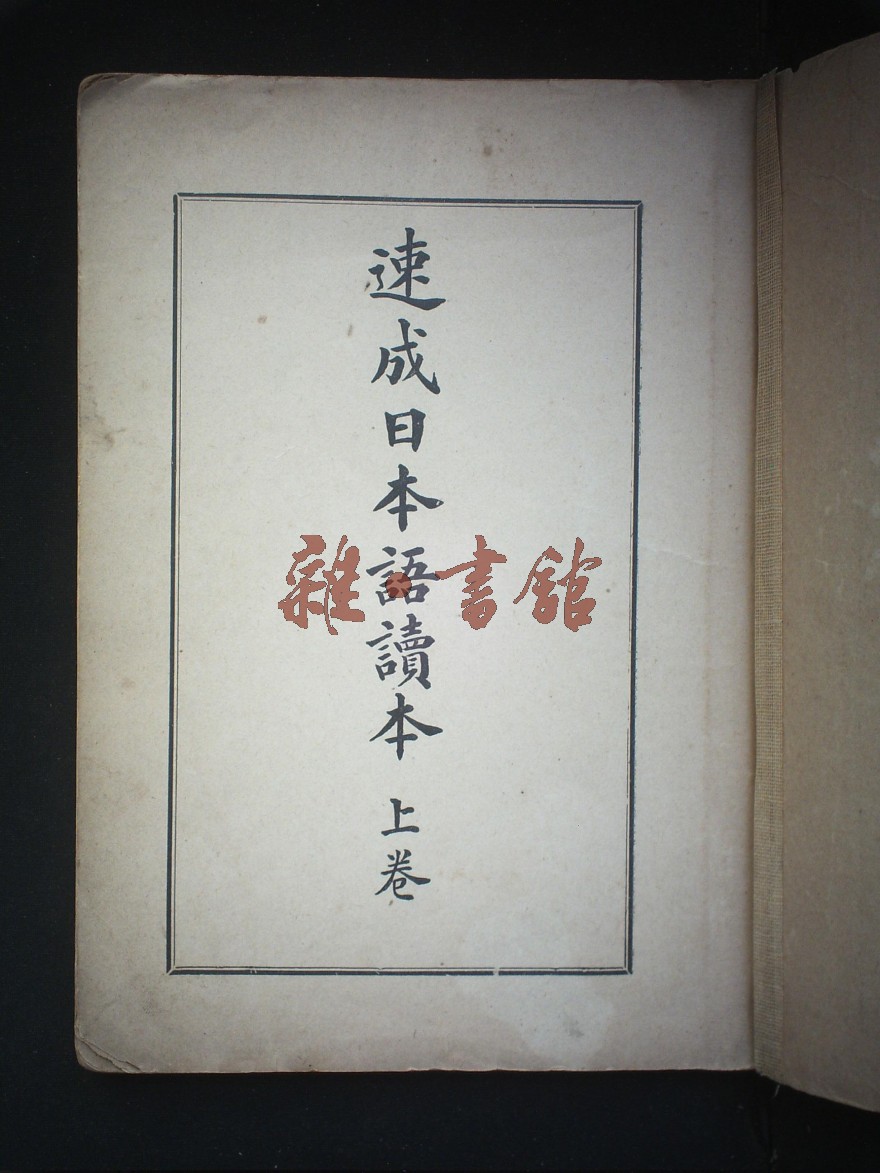 速成日本語讀本 上卷
雜書館